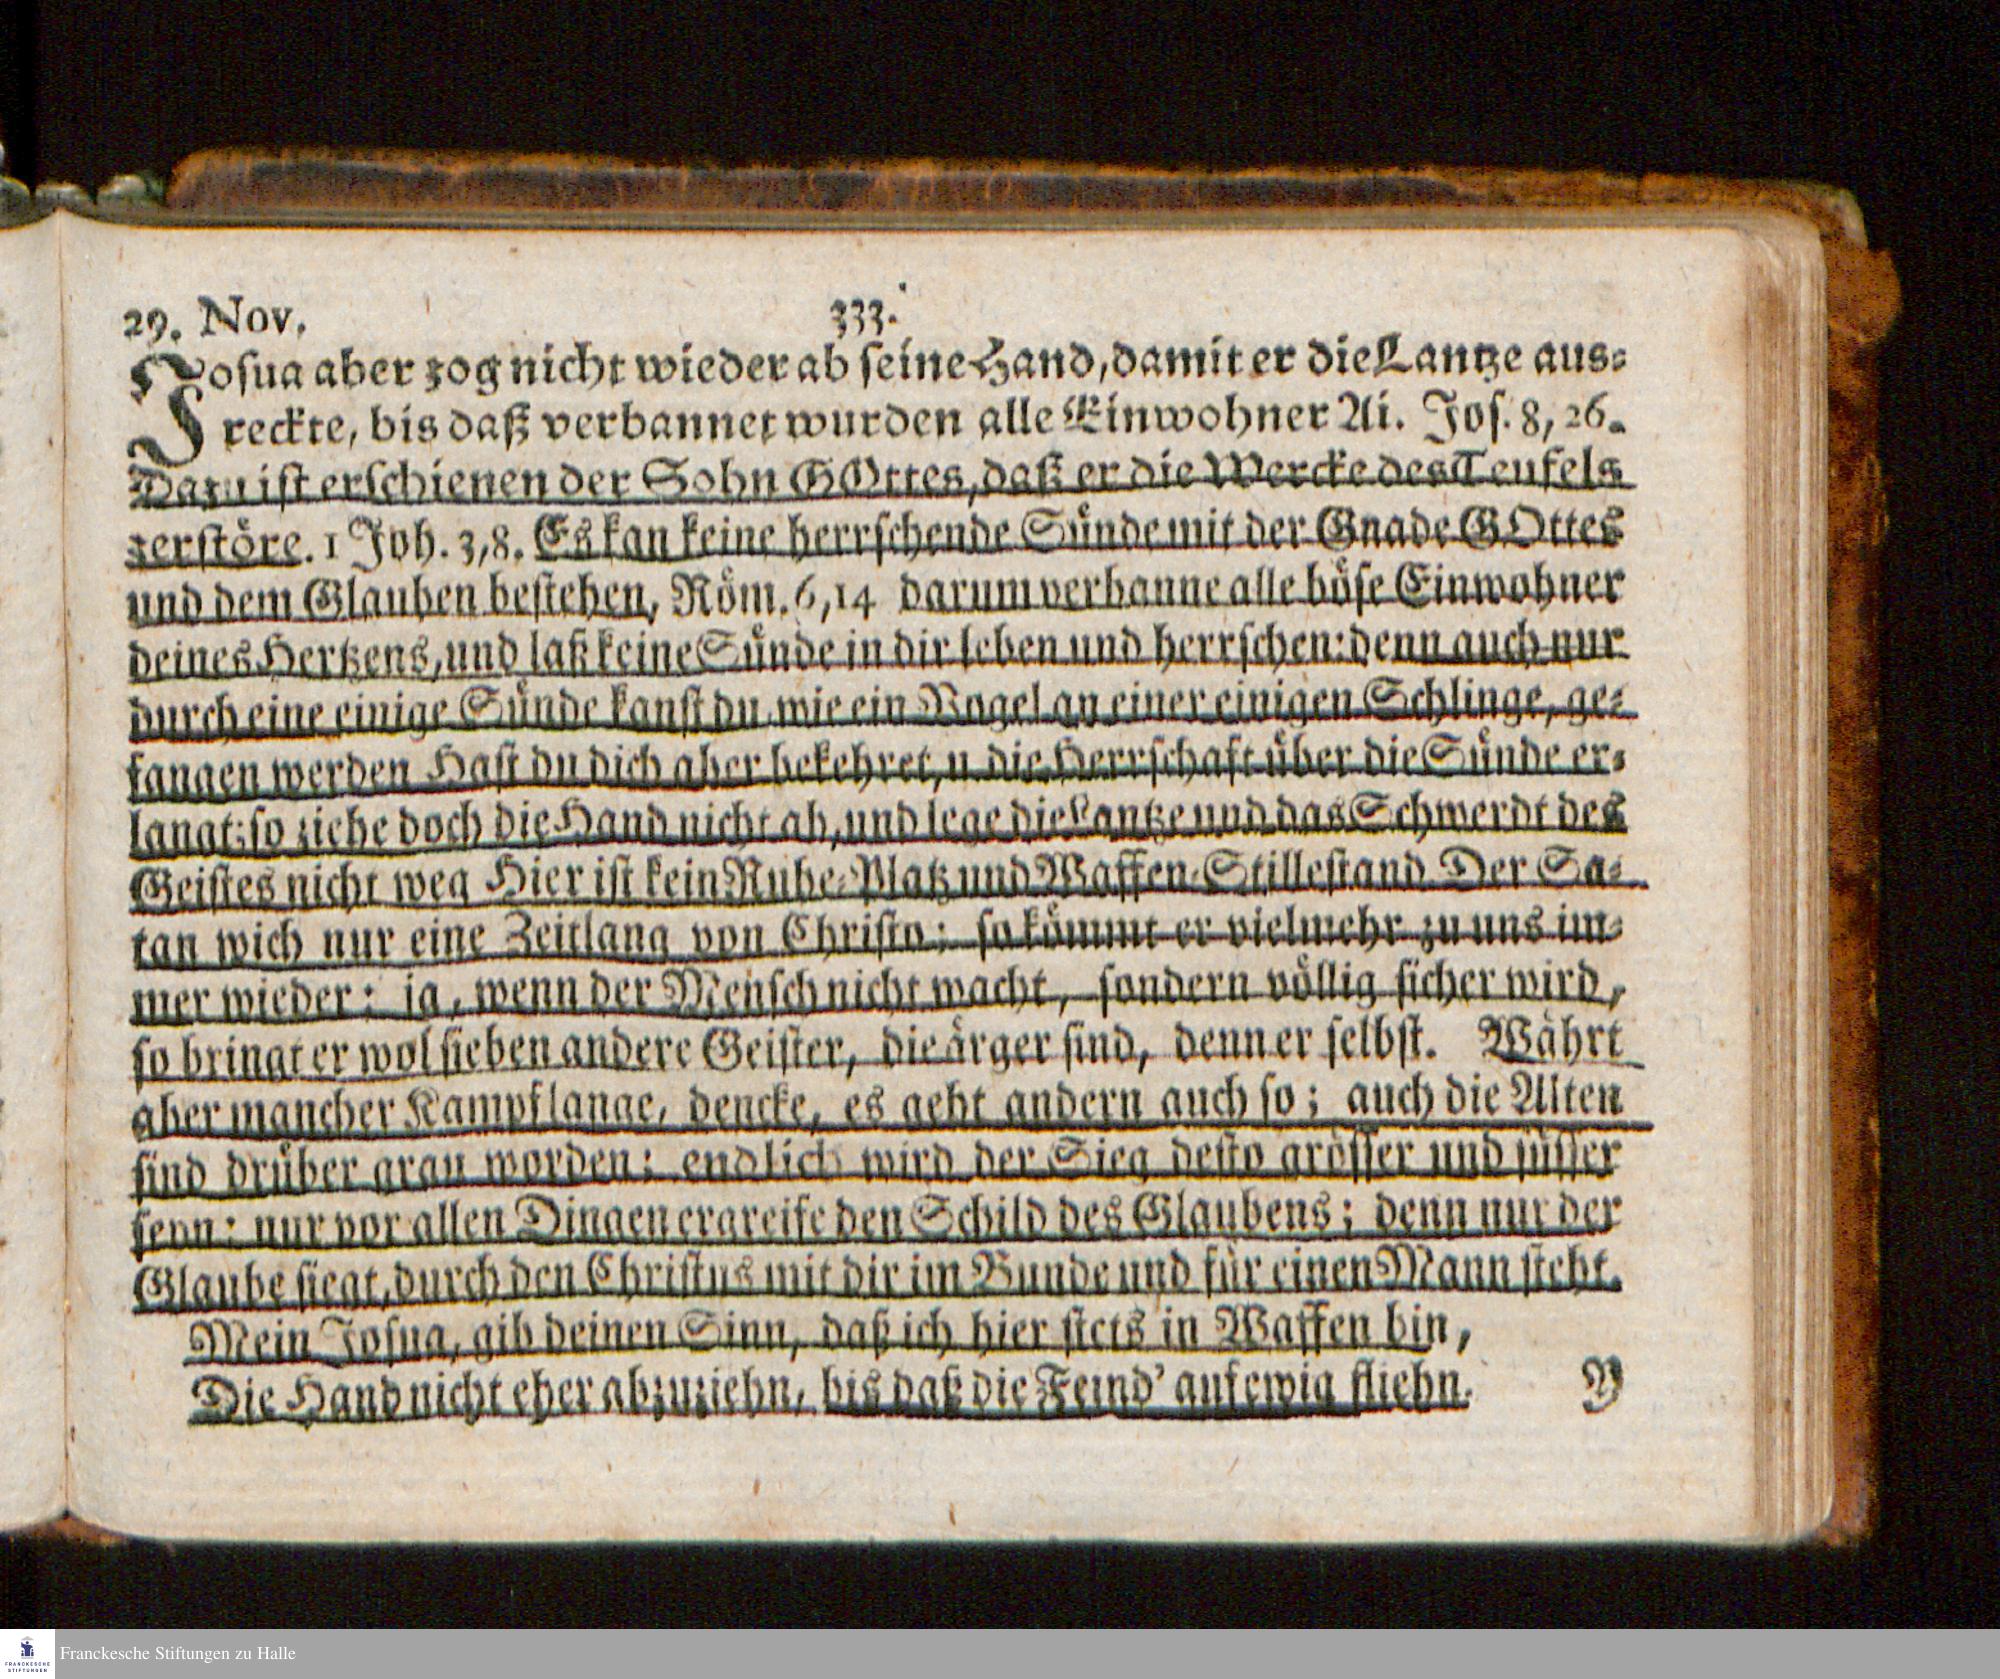 29. Nov. 333.
Josua aber zog nicht wieder ab seine Hand, damit er die Lantze aus-
reckte, bis daß verbannet wurden alle Einwohner Ai. Jos. 8, 26.
Dazu ist erschienen der Sohn GOttes, daß er die Wercke des Teufels
zerstöre. 1 Joh. 3,8. Es kan keine herrschende Sünde mit der Gnade GOttes
und dem Glauben bestehen, Röm. 6,14 darum verbanne alle böse Einwohner
deines Hertzens, und laß keine Sünde in dir leben und herrschen: denn auch nur
durch eine einige Sünde kanst du, wie ein Vogel an einer einigen Schlinge, ge-
fangen werden Hast du dich aber bekehret, u. die Herrschaft über die Sünde er-
langt: so ziehe doch die Hand nicht ab, und lege die Lantze und das Schwerdt des
Geistes nicht weg Hier ist kein Ruhe-Platz und Waffen-Stillestand Der Sa-
tan wich nur eine Zeitlang von Christo; so kömmt er vielmehr zu uns im-
mer wieder: ja, wenn der Mensch nicht wacht, sondern völlig sicher wird,
so bringt er wol sieben andere Geister, die ärger sind, denn er selbst. Währt
aber mancher Kampf lange, dencke, es geht andern auch so; auch die Alten
sind drüber grau worden: endlich wird der Sieg desto grösser und süsser
seyn: nur vor allen Dingen ergreife den Schild des Glaubens; denn nur der
Glaube siegt, durch den Christus mit dir im Bunde und für einen Mann steht.
Mein Josua, gib deinen Sinn, daß ich hier stets in Waffen bin,
Die Hand nicht eher abzuziehn, bis daß die Feind' auf ewig fliehn. Y
FRANCKESCHE
STIFTUNGEN
Franckesche Stiftungen zu Halle